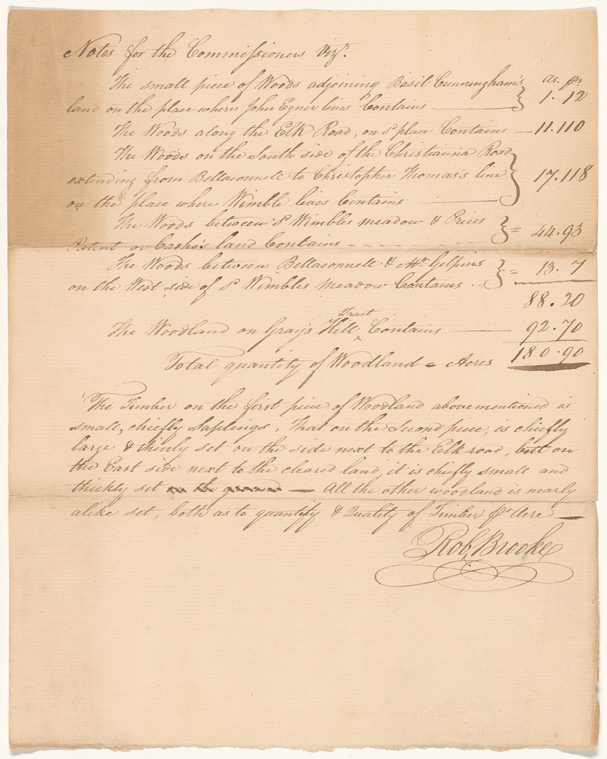 Notes for the Commissioners Viz.
as. ps
The small piece of Woods adjoining Basil Cunningham's
land, on the place where John Egner lives Contains 1.12
The Woods along the Elk Road, on sd. place Contains 11.110
The Woods on the South side of the Christianna Road
extending from Bellaconnell to Christopher Thomas's line
on the place where Wimble lives Contains 17.118
The Woods between sd. Wimbles meadow & Prices
Patent or land Contains = 44.93
The Woods between Bellaconnell & Mr. Gilpins
on the West side of sd. Wimbles meadow Contains = 13.7
88.20
Tract
The Woodland on Grays Hill Contains 92.70
Total quantity of Woodland = Acres 180.90
The Timber on the first piece of Woodland above mentioned is
small, chiefly Saplings, That on the Second piece, is chiefly
large & thinly set on the side next to the Elk road, but on
the East side next to the cleared land, it is chiefly small and
thickly set on the ground — All the other woodland is nearly
alike set, both as to quantity & Quality of Timber pr. Acre —
Rob. Brooke